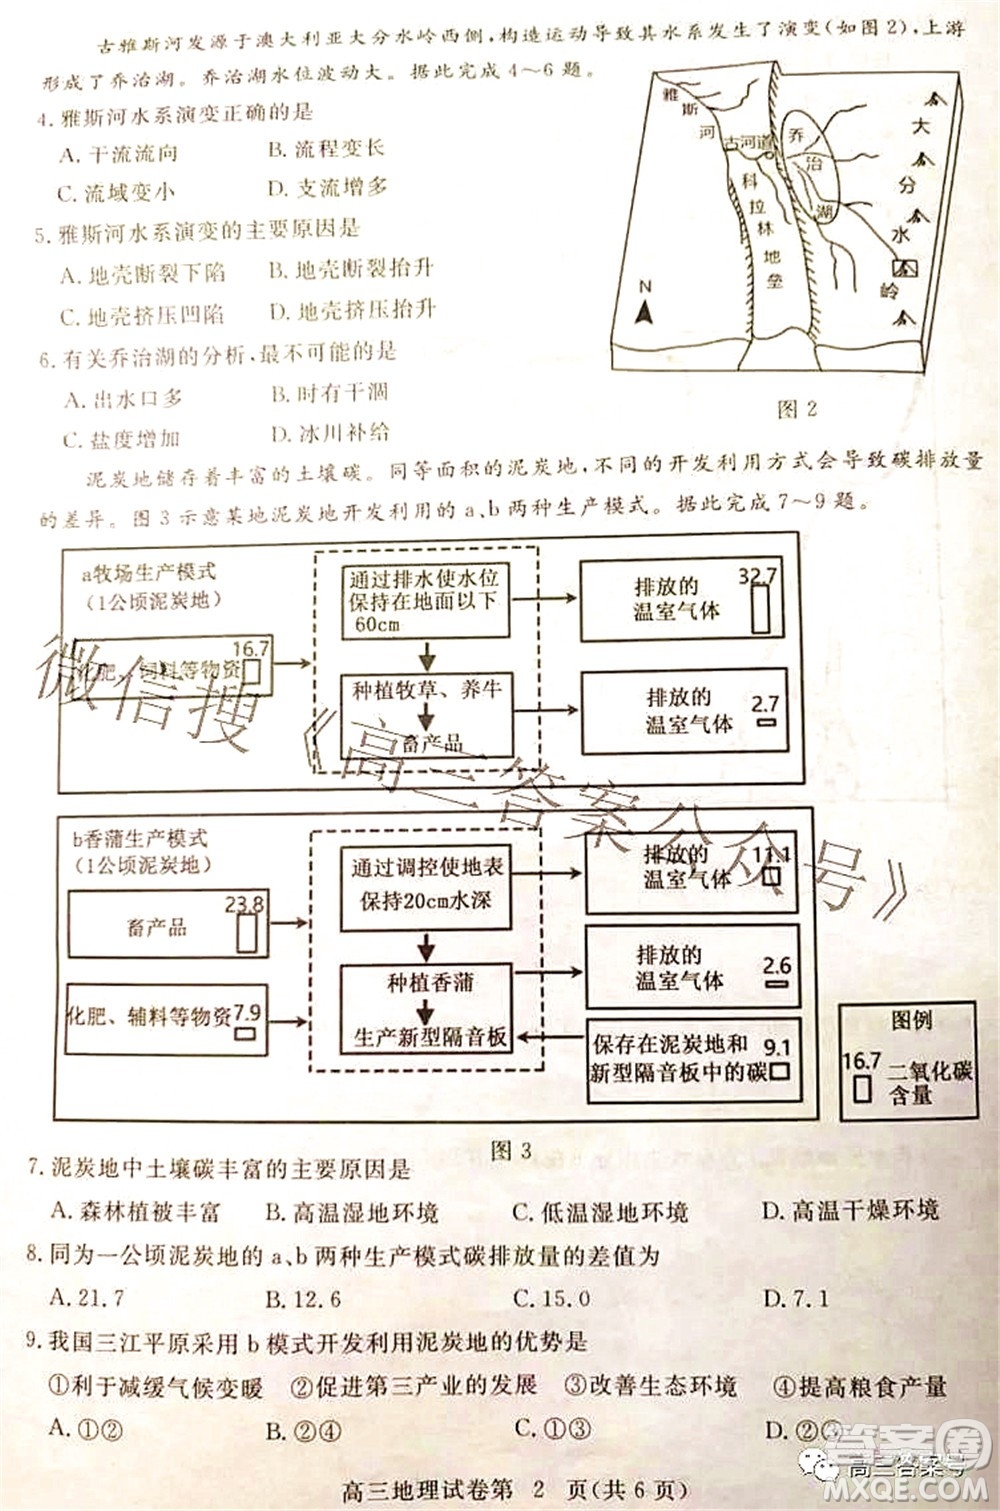 古雅斯河发源于澳大利亚大分水岭西侧，构造运动导致其水系发生了演变(如图2)，上游
形成了乔治湖。乔治湖水位波动大。据此完成4～6题。
4.雅斯河水系演变正确的是
A.干流流向 B.流程变长
C.流域变小 D.支流增多
5.雅斯河水系演变的主要原因是
A.地壳断裂下陷 B.地壳断裂抬升
C.地壳挤压凹陷 D.地壳挤压抬升
6.有关乔治湖的分析，最不可能的是
A.出水口多 B.时有干涸
C.盐度增加 D.冰川补给
雅斯河
古河道
乔治湖
科拉林地垒
大分水岭
N
图2
泥炭地储存着丰富的土壤碳。同等面积的泥炭地，不同的开发利用方式会导致碳排放量
的差异。图3示意某地泥炭地开发利用的a、b两种生产模式。据此完成7～9题。
a牧场生产模式
(1公顷泥炭地)
化肥、饲料等物资 16.7
通过排水使水位
保持在地面以下
60cm
种植牧草、养牛
畜产品
排放的
温室气体 32.7
排放的
温室气体 2.7
b香蒲生产模式
(1公顷泥炭地)
畜产品 23.8
化肥、辅料等物资 7.9
通过调控使地表
保持20cm水深
种植香蒲
生产新型隔音板
排放的
温室气体 11.1
排放的
温室气体 2.6
保存在泥炭地和
新型隔音板中的碳 9.1
图例
16.7 二氧化碳
含量
图3
7.泥炭地中土壤碳丰富的主要原因是
A.森林植被丰富 B.高温湿地环境 C.低温湿地环境 D.高温干燥环境
8.同为一公顷泥炭地的a、b两种生产模式碳排放量的差值为
A.21.7 B.12.6 C.15.0 D.7.1
9.我国三江平原采用b模式开发利用泥炭地的优势是
①利于减缓气候变暖 ②促进第三产业的发展 ③改善生态环境 ④提高粮食产量
A.①② B.②④ C.①③ D.②③
高三地理试卷第 2 页(共6页)
微信搜《高三答案公众号》
高三答案号
答案圈
MXQE.COM